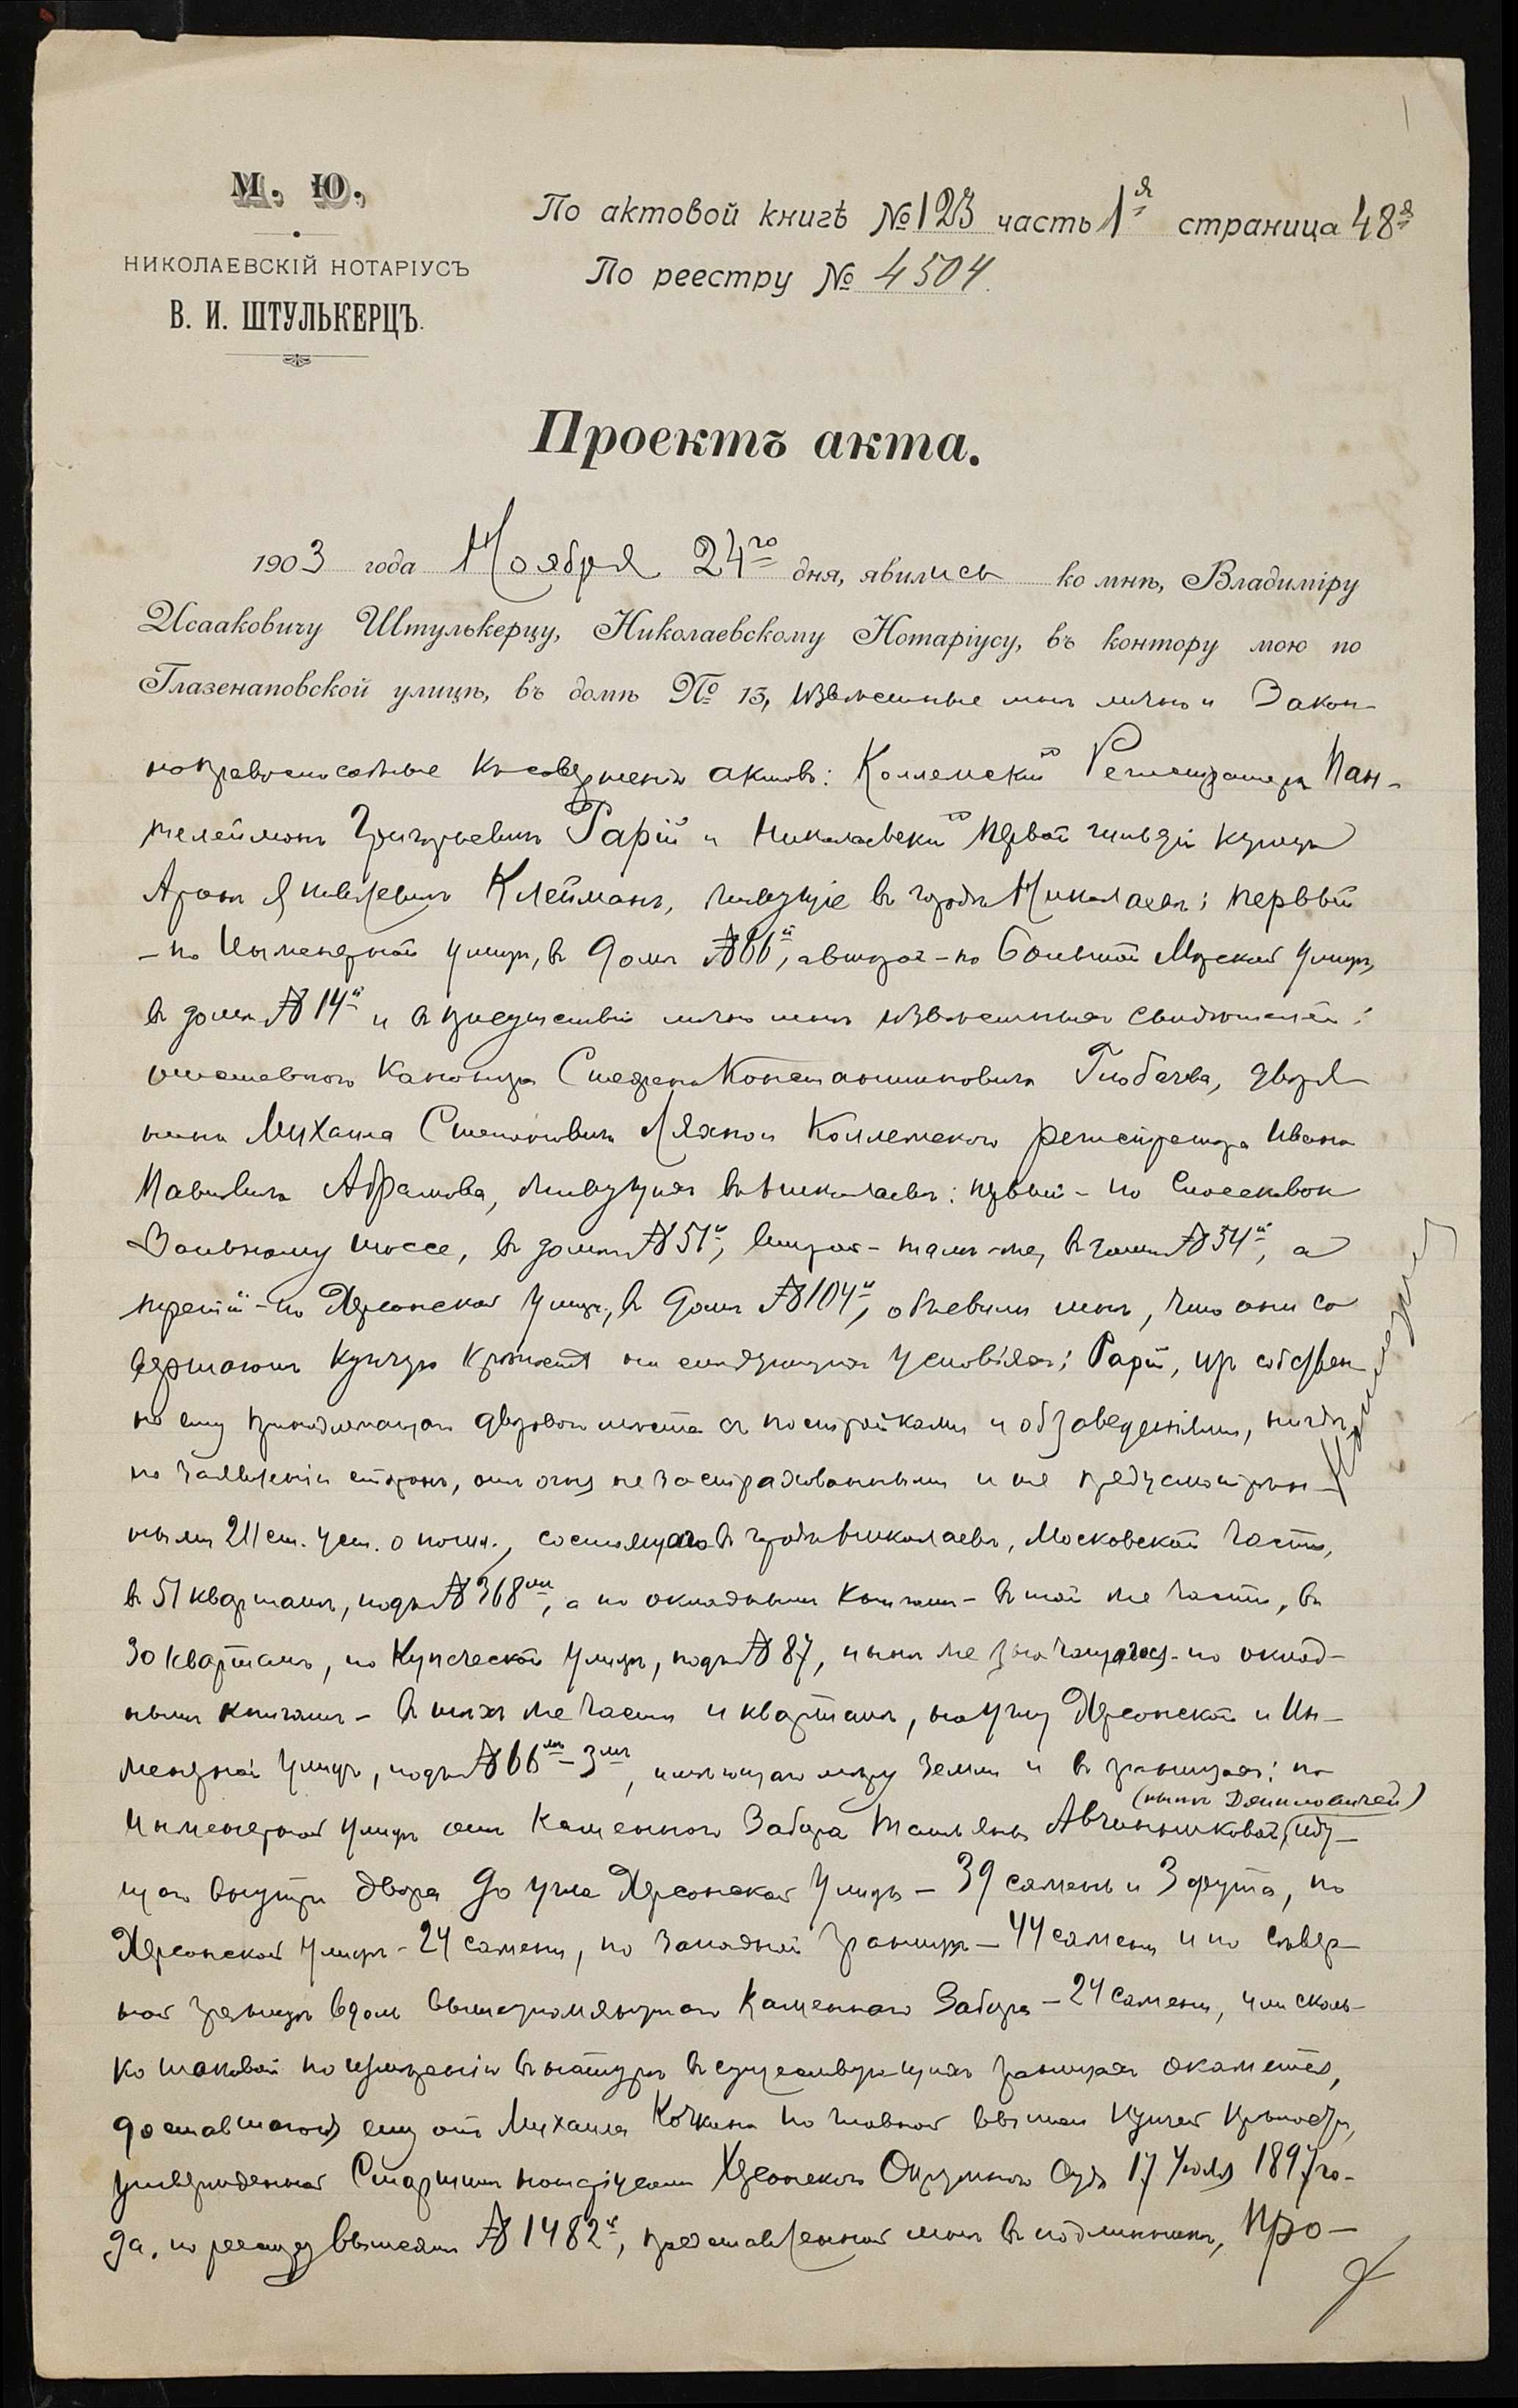 М. Ю.
НИКОЛАЕВСКІЙ НОТАРІУСЪ
В. И. ШТУЛЬКЕРЦЪ.
По актовой книгѣ № 123 часть 1я страница 48я
По реестру № 4504.
Проектъ акта.
1903 года Ноября 24го дня, явились ко мнѣ, Владиміру
Исааковичу Штулькерцу, Николаевскому Нотаріусу, въ контору мою по
Глазенаповской улицѣ, въ домѣ № 13, извѣстные мнѣ лично и Закон-
ноправоспособные къ совершенію актовъ: Коллежскій Регистраторъ Пан-
телеймонъ Григорьевичъ Гарій и Николаевскій первой гильдіи купецъ
Аронъ Клейманъ, живущіе въ городѣ Николаевѣ: первый
- по Инженерной улицѣ, въ домѣ № 66й, а второй - по Большой Морской улицѣ,
въ домѣ № 14й и въ присутствіи лично мнѣ извѣстныхъ свидѣтелей:
отставного Константиновича дворя-
нина Михаила Степановича и Коллежского регистратора Ивана
Павловича Абрамова, живущихъ въ Николаевѣ: первый - по Спасскому
шоссе, въ домѣ № 51й, второй - тамъ-же, въ домѣ № 54й, а
третій - по Херсонской улицѣ, въ домѣ № 104й, объявили мнѣ, что они со
вершаютъ купчую крѣпость на слѣдующихъ условіяхъ: Гарій, изъ собствен-
но ему принадлежащаго дворового мѣста съ постройками и обзаведеніями, нигдѣ,
по заявленію сторонъ, отъ огня не застрахованными и не предусмотрѣн-
ными 211 ст. уст. о пошл., состоящаго въ городѣ Николаевѣ, Московской части,
въ 51 кварталѣ, подъ № 368мъ, а по окладнымъ книгамъ - въ той же части, въ
30 кварталѣ, по Купеческой улицѣ, подъ № 87, нынѣ же значащагося - по оклад-
нымъ книгамъ - въ тѣхъ же части и кварталѣ, на углу Херсонской и Ин-
женерной улицъ, подъ № 66мъ-3мъ, имѣющаго мѣру земли и въ границахъ: по
(нынѣ Даниловичей)
Инженерной улицѣ отъ каменного забора Татьяны Авчинниковой, иду-
щаго внутри двора до угла Херсонской улицы - 39 сажень и 3 фута, по
Херсонской улицѣ - 24 сажени, по западной границѣ - 44 сажени и по сѣвер-
ной границѣ вдоль вышеупомянутаго каменнаго забора - 24 сажени, или сколь-
ко таковой по измѣренію въ натурѣ въ существующихъ границахъ окажется,
доставшагося ему отъ Михаила Кочкина по купчей крѣпости,
утвержденной Старшимъ нотаріусомъ Херсонского Окружного Суда 17 Іюля 1897 го-
да, по реестру № 1482й, представленной мнѣ въ подлинникѣ, про-